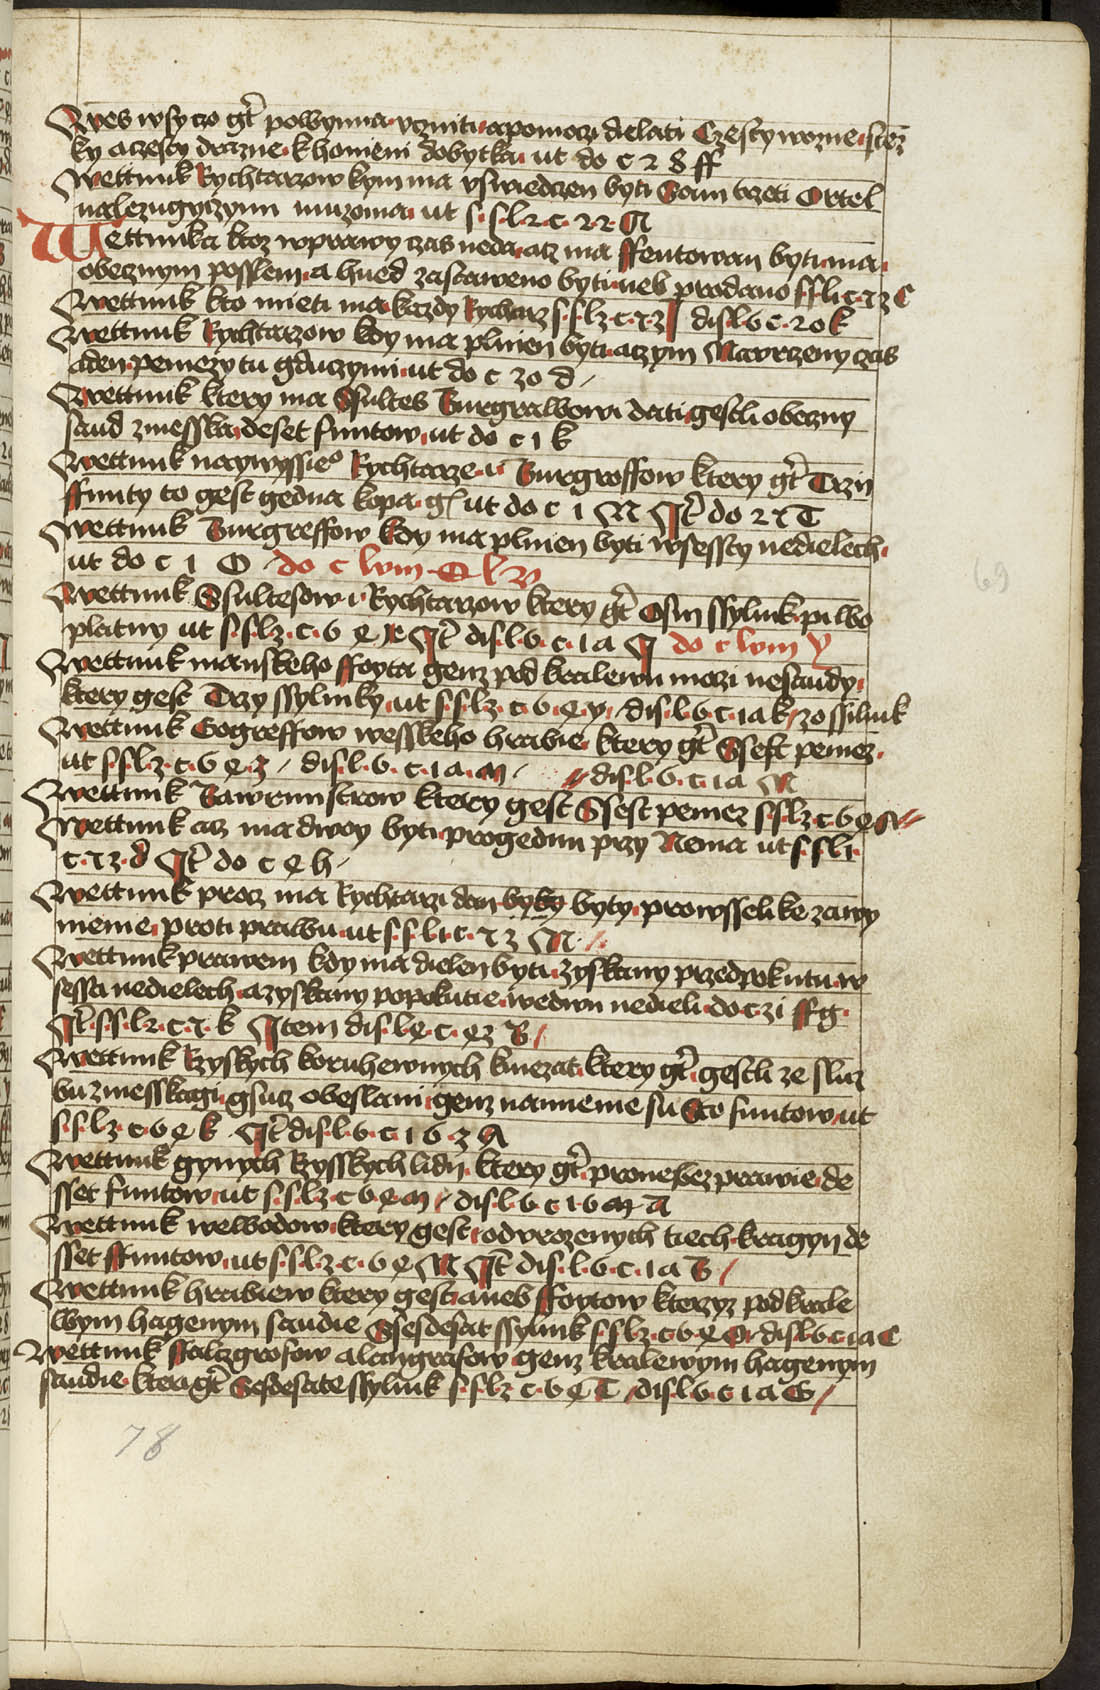 Wes wsyczo gt̄ powynna vcziniti apomozi dielati Czesty wozne stez
ky aczesty drazne k honieni dobytka ut do c 2 8 ff
Wettunk Rychtarzow kym ma vswiedczen byti Sam trzeti Ortel
nalezugyczymi ut s. s. l. 2. c. 22 A
Wettunka ktoz wprawy czas neda acz ma ffentowan byti ma
obecznym posslem a hned zastaweno byti neb prodano ff li c 12 C
Wettunk kto mieti ma kazdy Rychtarz s. s. l 2. c. 12 dis l 6 c. 20 k
Wettunk Rychtarzow kdy ma plnien byti aczym Navrzeny czas
a den peniezy tu gduczymi ut do c 20 d
Wettunk ktery ma Ssultes Burgrabowi dati gestli obeczny
saud zmesska deset funtow ut do c 1 k
Wettunk naywyssieo Rychtarze i Burgroffow ktery gt̄ Trzij
ffunty to gest gedna kopa gſ ut do c 1 N Jt̄ do 21 T
Wettunk Burgreffow kdy ma plnien byti wssessty nedielech
ut do c 1 O do c lvm O l
Wettunk Ssultesow i Rychtarzow ktery gt̄ Osm ssylink pulbo
platny ut s. s. l 2. c. 6 Q Jt̄ dis. l. 6. c. 1 a do c lvm y
Wettunk manskeho ffoyta genz pod kralewu mozi nesaudy
ktery gest Trzy ssylinky ut s. s. l 2. c. 6. Q y dis. l. 6 c. 1 a k zo ssilink
Wettunk Gogreffow wesskeho hrabie ktery gt̄ Ssest peniez
ut s. s. l. 2. c. 6 Q. 3 dis. l. 6. c. 1 a. m dis. l. 6. c. 1 a N
Wettunk Bawrmistrow ktery gest Ssest peniez s. s. l 2. c. 6 Q
Wettunk acz ma dwoy byti progednu przy Nema ut s. s. l 1.
c. 12. d Jt̄ do c Q h
Wettunk procz ma Rychtarzi dan byty byty prowsselike zawy
nienie proti prawu ut s. s. l 1. c. 12 N
Wettunk prawem kdy ma dielen byti zyskany przedpokutu w
sessti nedielech azyskany popokutie wedwu nedieli do czi ff g
Jt̄ s. s. l 2. c. 7. k Jtem dis. l Q c. Q2 B
Wettunk Rzyskych koruhewnych kniezat ktery gt̄ gestli ze sluz
bu zmesskagi gsucz obeslani genz nanneme su Sto funtow ut
s. s. l 2. c. 6 Q k Jt̄ dis. l. 6. c. 1 6. 3 A
Wettunk gynych Rzysskych lidij ktery gt̄ pronebezprawie de
sset funtow ut s. s. l 2. c 6 Q m dis. l. 6 c 1 6 m A
Wettunk wewodow ktery gest odvrozenych tiech kragyn de
sset ffuntow ut s. s. l 2. c. 6 Q N Jt̄ dis. l. 6. c. 1 a B
Wettunk hrabiew ktery gest aneb ffoytow kteryz podkrale
wym hagenym saudie Ssesdesat ssylink s. s. l 2. c 6 Q O dis l 6 c 1 a C
Wettunk ffalczgrofow alangrafow genz kralewym hagenym
saudie ktery gt̄ Sesdesate ssylink s. s. l 2 c. 6 Q T dis. l. 6. c 1 a G
69
78